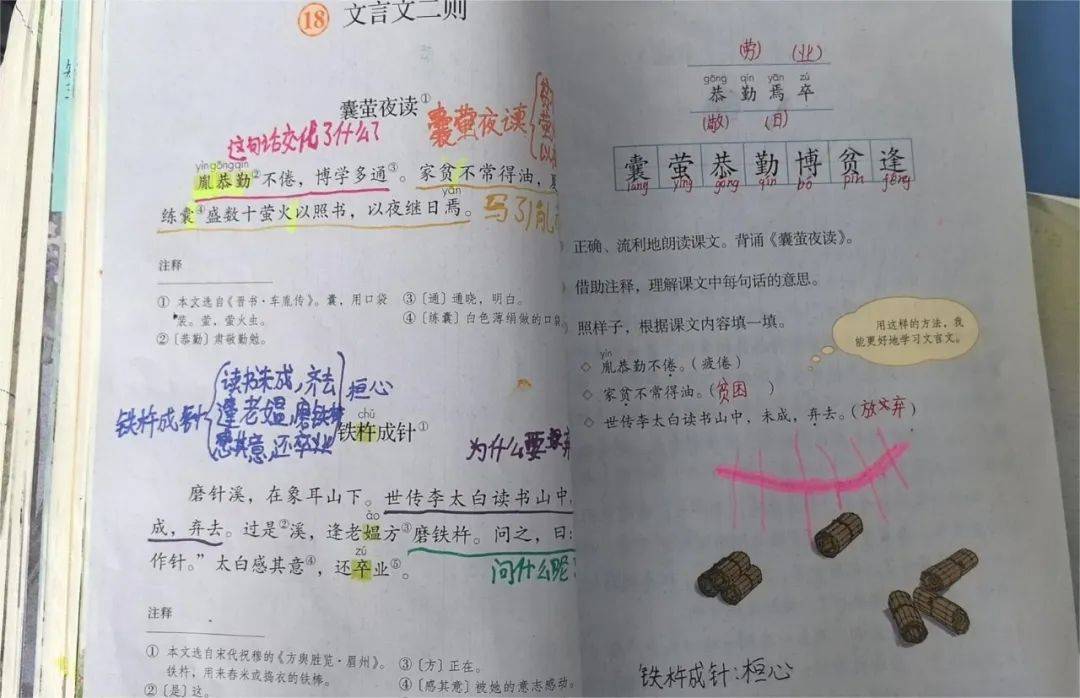 18 文言文二则
囊萤夜读①
囊萤夜读
这句话交代了什么
yìn gōng qín
胤恭勤②不倦，博学多通③。家贫不常得油，夏
yān
练囊④盛数十萤火以照书，以夜继日焉。
注释
① 本文选自《晋书·车胤传》。囊，用口袋
装。萤，萤火虫。
②〔恭勤〕肃敬勤勉。
③〔通〕通晓，明白。
④〔练囊〕白色薄绢做的口袋
铁杵成针
读书未成，弃去
逢老媪，磨铁杵
感其意，还卒业
桓心
chǔ
铁杵成针①
为什么要
磨针溪，在象耳山下。世传李太白读书山中
成，弃去。过是②溪，逢老媪方③磨铁杵。问之，曰：
ǎo
zú
作针。”太白感其意④，还卒业⑤。
问什么呢
注释
① 本文选自宋代祝穆的《方舆胜览·眉州》。
铁杵，用来舂米或捣衣的铁棒。
②〔是〕这。
③〔方〕正在。
④〔感其意〕被她的意志感动。
(劳) (业)
gōng qín yān zú
恭 勤 焉 卒
(敬) (日)
囊 萤 恭 勤 博 贫 逢
nang ying gong qin bó pin féng
正确、流利地朗读课文。背诵《囊萤夜读》。
借助注释，理解课文中每句话的意思。
照样子，根据课文内容填一填。
用这样的方法，我
能更好地学习文言文。
yìn
◇ 胤恭勤不倦。（疲倦）
◇ 家贫不常得油。（贫困）
◇ 世传李太白读书山中，未成，弃去。（放弃）
铁杵成针：桓心